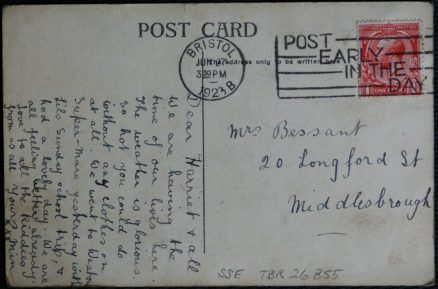 POST CARD
BRISTOL
JUN
3 PM
1923
POST
EARLY
IN THE
DAY
address only to be written
Dear Harriet & all
We are having the
time of our lives here.
The weather is glorious.
so hot you could do
without any clothes on
at all. We went to Weston
Super-Mare yesterday with
Sunday school trip, &
had a lovely day. We are
all feeling better already.
love to all the kiddies
from us all Yours
Mrs Bessant
20 Longford St
Middlesbrough
SSE TBR 26855